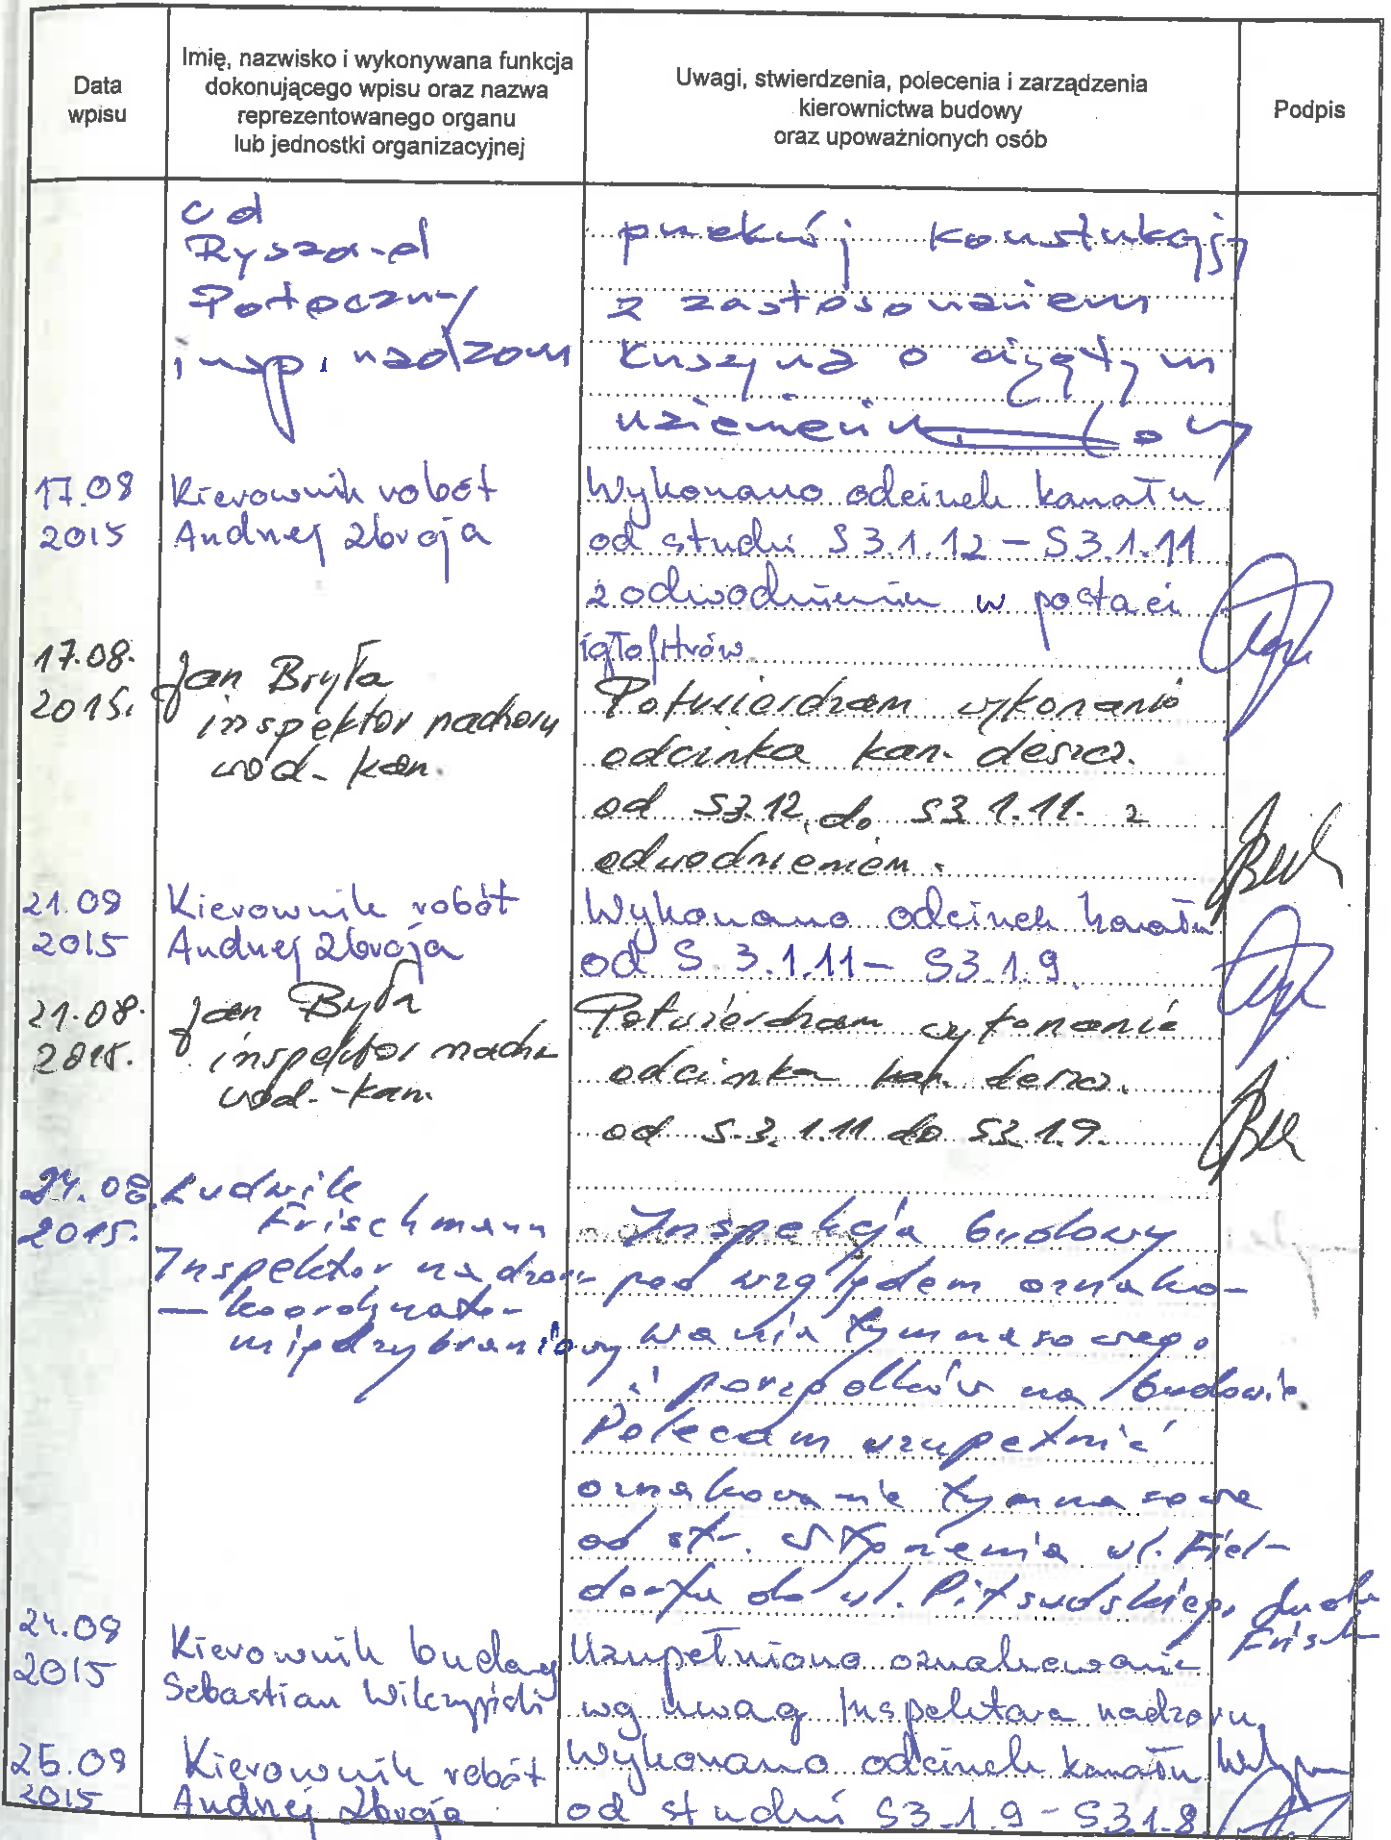 Data
wpisu
Imię, nazwisko i wykonywana funkcja
dokonującego wpisu oraz nazwa
reprezentowanego organu
lub jednostki organizacyjnej
Uwagi, stwierdzenia, polecenia i zarządzenia
kierownictwa budowy
oraz upoważnionych osób
Podpis
cd
Ryszard
Potoczny
insp. nadzoru
przekrój konstukcyjny
z zastosowaniem
kruszywa o ciągłym
uziarnieniu
17.08
2015
Kierownik robót
Andrzej Zbroja
Wykonano odcinek kanału
od studni S3.1.12 – S3.1.11
z odwodnieniem w postaci
igłofiltrów.
17.08.
2015.
Jan Bryła
inspektor nadzoru
wod-kan.
Potwierdzam wykonanie
odcinka kan. deszcz.
od S3.12. do S3 1.11. z
odwodnieniem.
21.08
2015
Kierownik robót
Andrzej Zbroja
Wykonano odcinek kanału
od S. 3.1.11 – S3.1.9.
21.08.
2015.
Jan Bryła
inspektor nadz.
wod.-kan.
Potwierdzam wykonanie
odcinka kan. deszcz.
od S.3. 1.11 do S3 1.9.
24.08.
2015.
Ludwik
Frischmann
Inspektor nadzoru
– koordynator
międzybranżowy
Inspekcja budowy
pod względem oznako-
wania tymczasowego
i porządków na budowie.
Polecam uzupełnić
oznakowanie tymczasowe
od str. ul. Fiel-
dorfa do ul. Piłsudskiego
24.08
2015
Kierownik budowy
Sebastian
Uzupełniono oznakowanie
wg uwag Inspektora nadzoru
25.08
2015
Kierownik robót
Andrzej Zbroja
Wykonano odcinek kanału
od studni S3.1.9 – S3.1.8